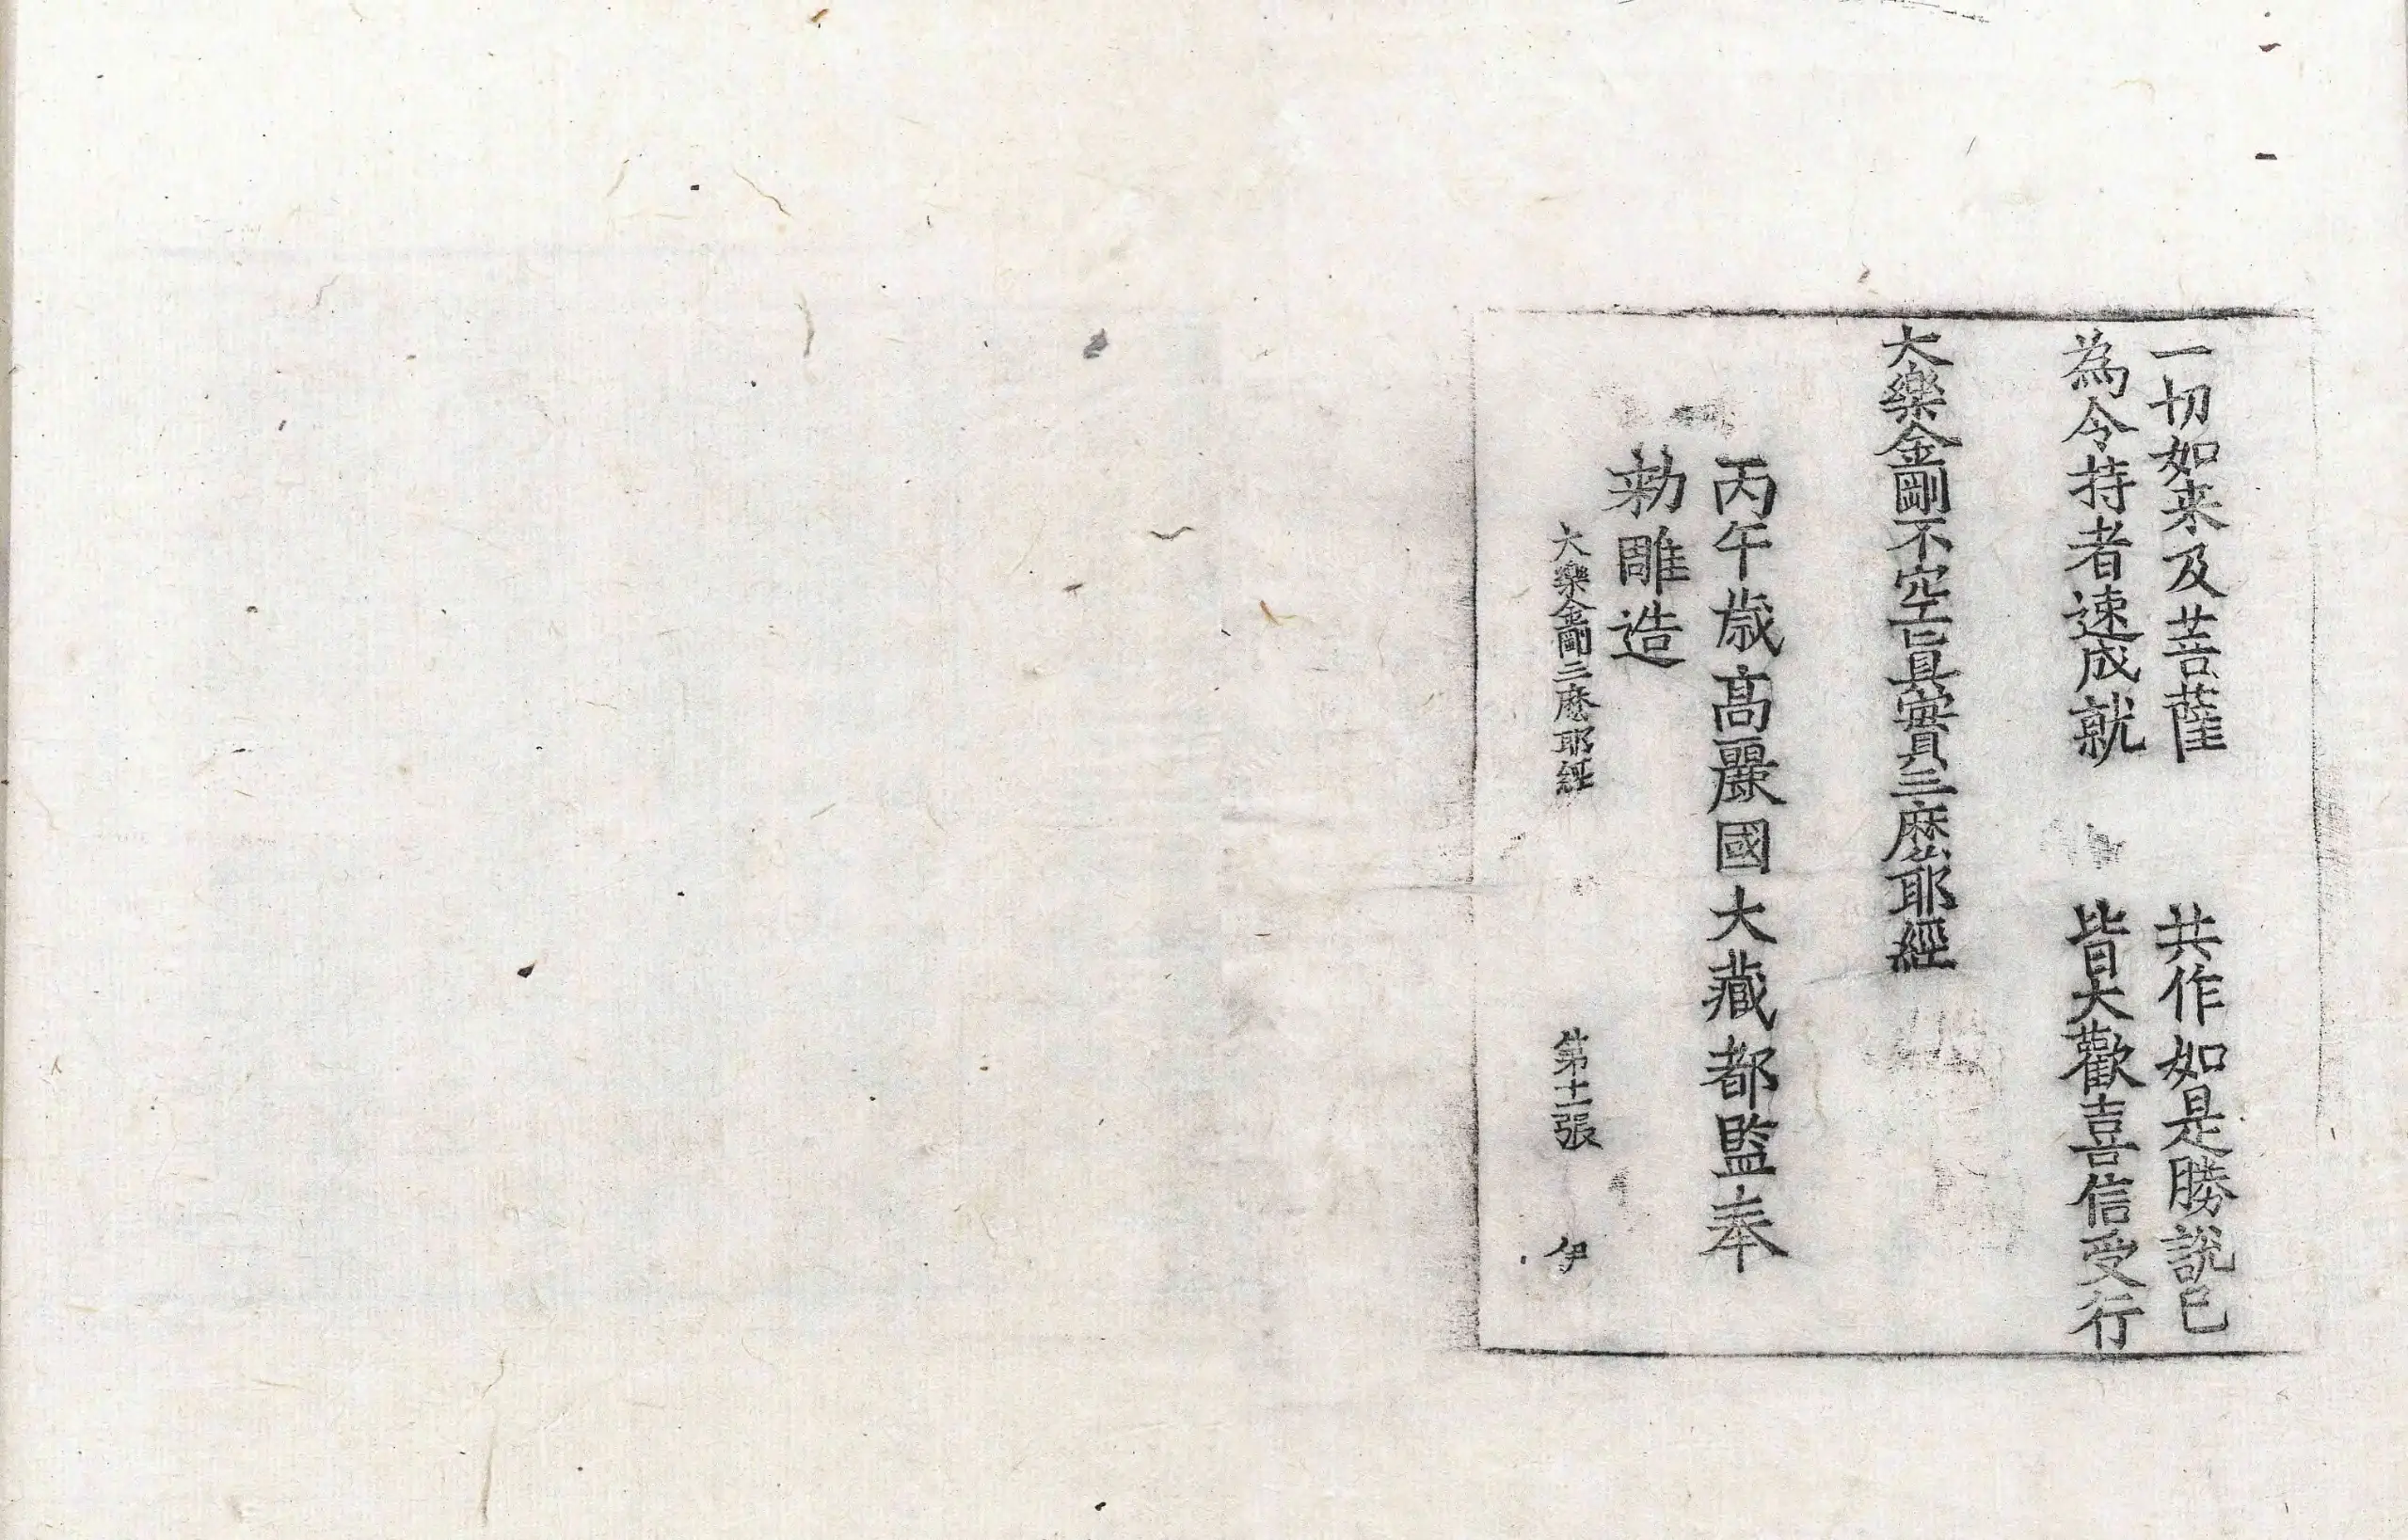 一切如来及菩薩　共作如是勝説已
為令持者速成就　皆大歡喜信受行
大樂金剛不空真實三麽耶經
丙午歲高麗國大藏都監奉
勅雕造
大樂金剛三麽耶經　第十一張　伊